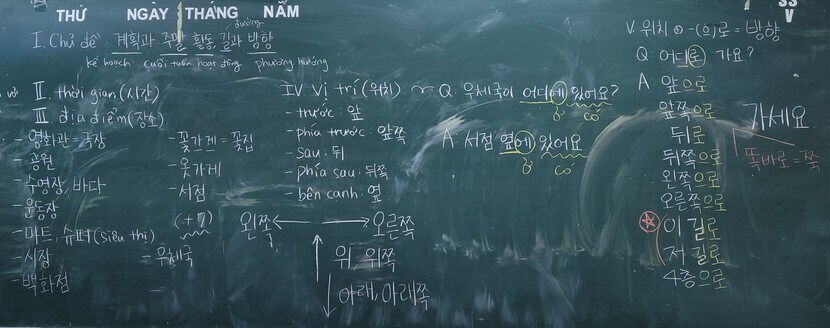 THỨ NGÀY THÁNG NĂM
SS
V
I. Chủ đề: 계획과 주말 활동, 길과 방향
đường
kế hoạch cuối tuần hoạt động phương hướng
II thời gian (시간)
III địa điểm (장소)
- 영화관 = 극장
- 공원
- 수영장, 바다
- 운동장
- 마트, 슈퍼 (siêu thị)
- 시장
- 백화점
- 꽃가게 = 꽃집
- 옷가게
- 서점
(+7)
- 우체국
IV Vị trí (위치)
- trước: 앞
- phía trước: 앞쪽
- sau: 뒤
- phía sau: 뒤쪽
- bên cạnh: 옆
왼쪽 ↔ 오른쪽
위, 위쪽
아래, 아래쪽
Q: 우체국이 어디에 있어요?
ở có
A: 서점 옆에 있어요
ở có
V. 위치 ⊕ -(으)로 = 방향
Q: 어디로 가요?
A: 앞으로
앞쪽으로
뒤로
뒤쪽으로
왼쪽으로
오른쪽으로
이 길로
저 길로
4층으로
가세요
똑바로 = 쭉